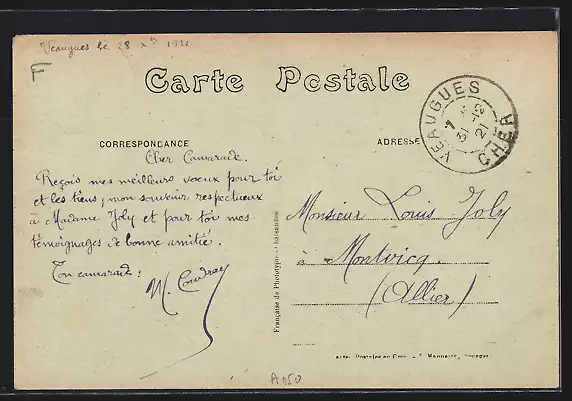 Veaugues le 28 Xbre 1921
F
Carte Postale
CORRESPONDANCE
ADRESSE
VEAUGUES
7
31 -12
21
CHER
Cher Camarade.
Reçois mes meilleurs voeux pour toi
et les tiens, mon souvenir respectueux
à Madame Joly et pour toi mes
témoignages de bonne amitié.
Ton camarade:
M. Coudray
Monsieur Louis Joly
à Montvicq.
(Allier)
Française de Phototypie - Châteaudun
A150